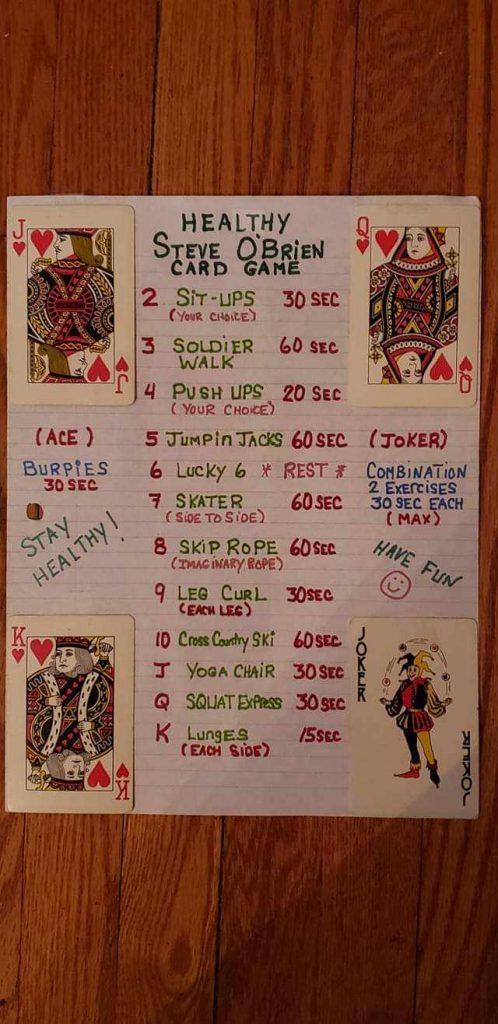 HEALTHY
STEVE O'BRIEN
CARD GAME
2 SIT-UPS 30 SEC
(YOUR CHOICE)
3 SOLDIER WALK 60 SEC
4 PUSH UPS 20 SEC
(YOUR CHOICE)
5 JUMPIN JACKS 60 SEC
6 LUCKY 6 * REST *
7 SKATER 60 SEC
(SIDE TO SIDE)
8 SKIP ROPE 60 SEC
(IMAGINARY ROPE)
9 LEG CURL 30 SEC
(EACH LEG)
10 Cross Country Ski 60 SEC
J YOGA CHAIR 30 SEC
Q SQUAT EXPRESS 30 SEC
K LUNGES 15 SEC
(EACH SIDE)
(ACE)
BURPIES
30 SEC
STAY
HEALTHY!
(JOKER)
COMBINATION
2 EXERCISES
30 SEC EACH
(MAX)
HAVE FUN
J
J
Q
Q
K
K
JOKER
JOKER